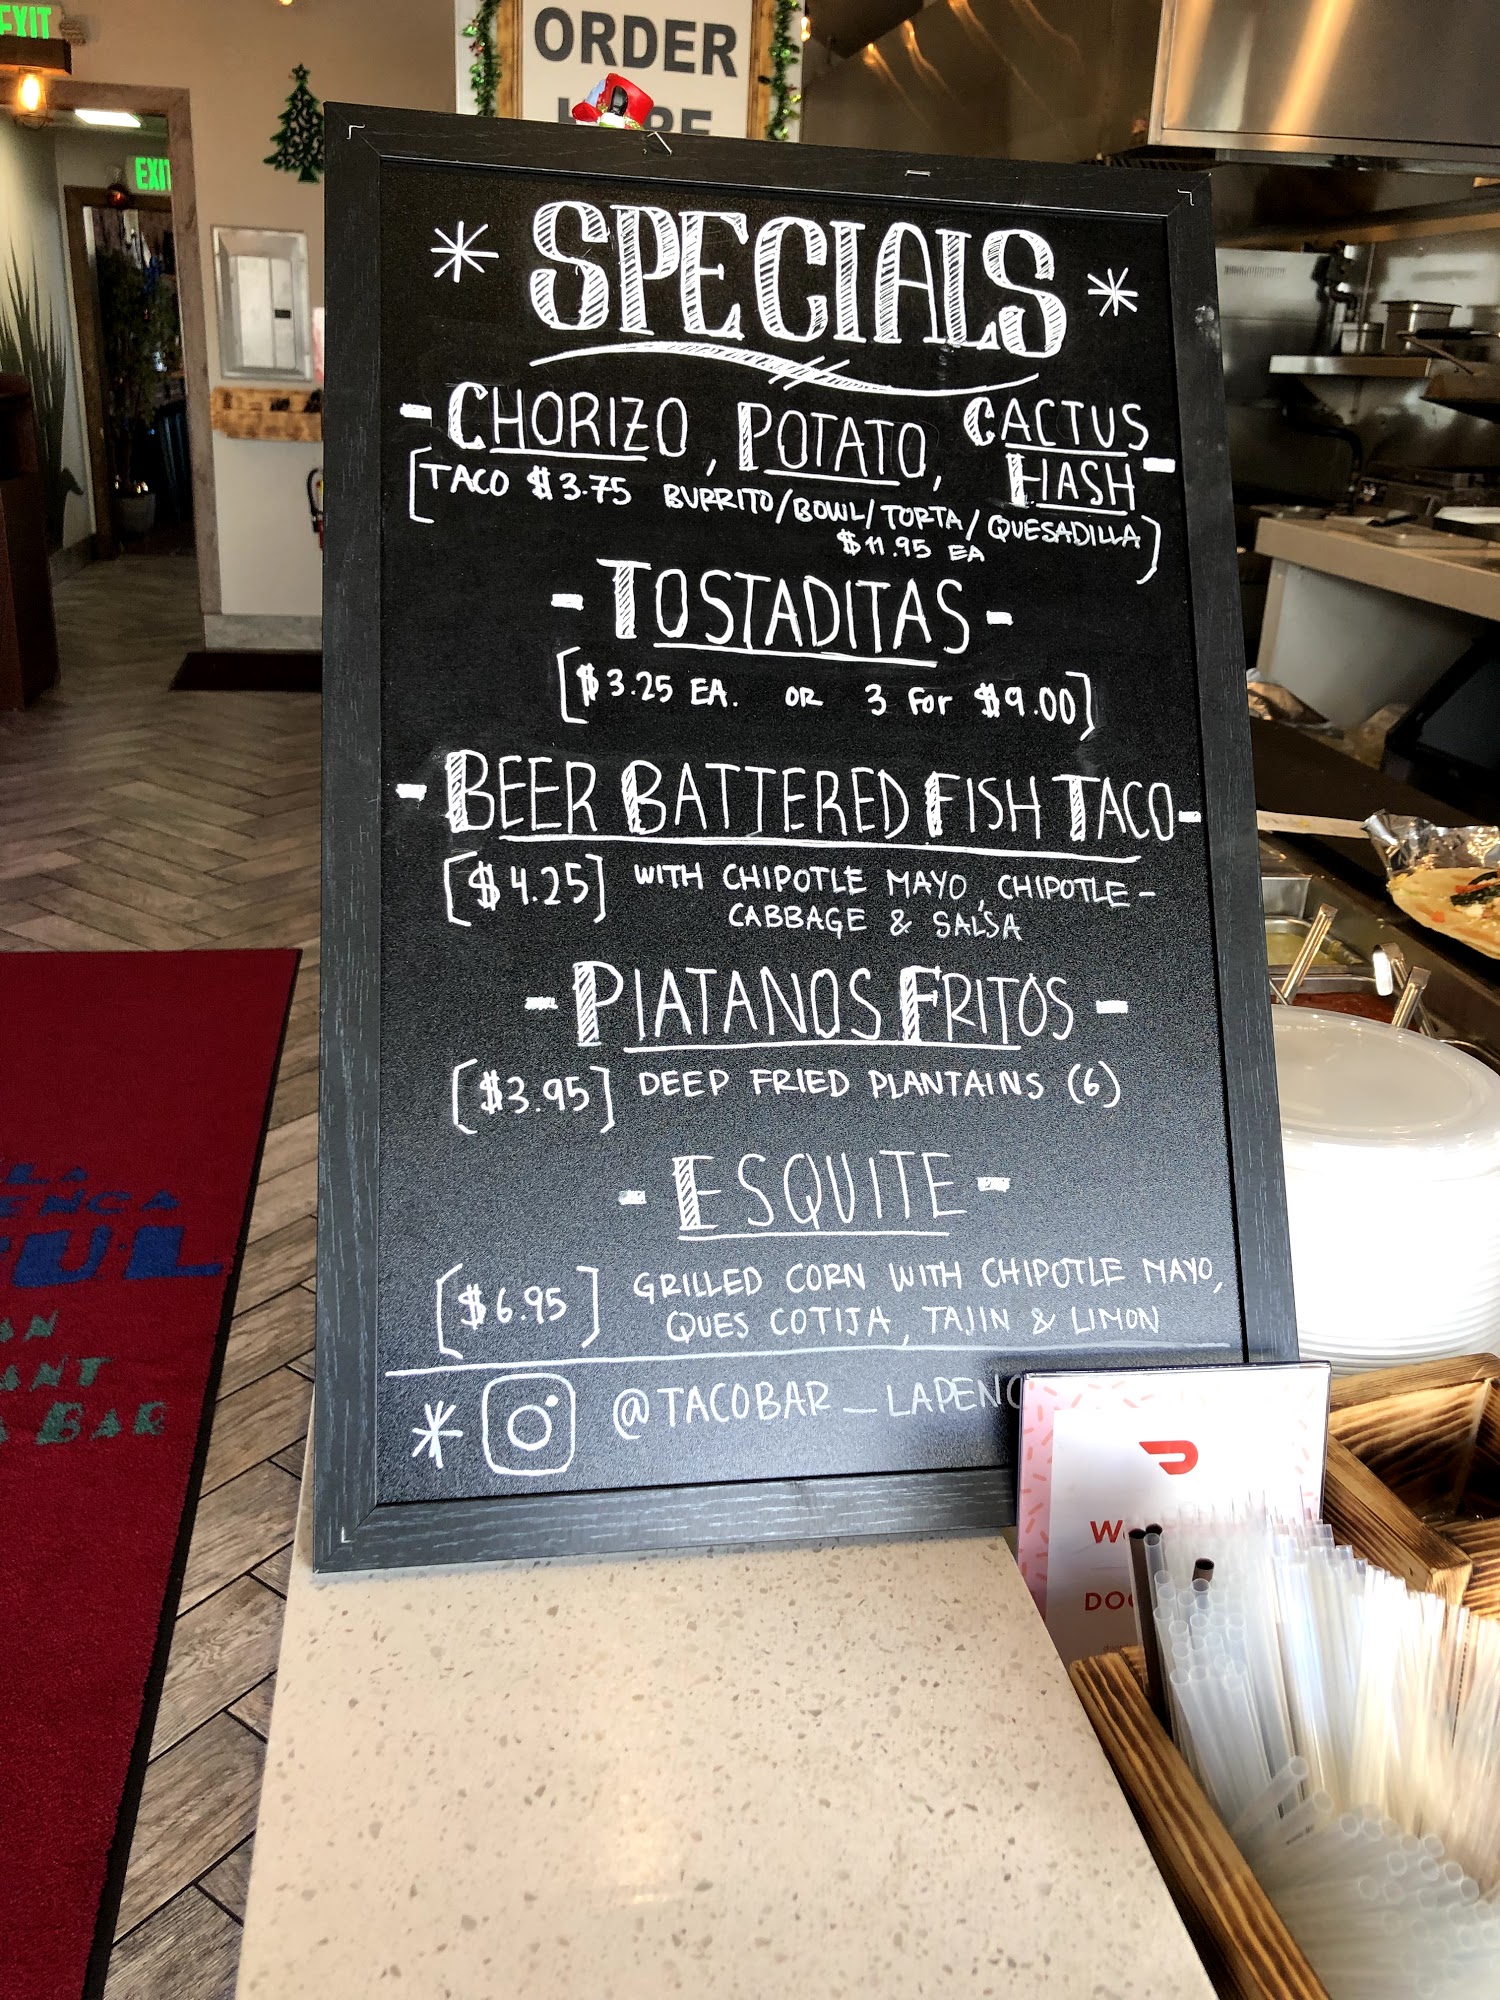 EXIT
EXIT
ORDER
HERE
* SPECIALS *
- CHORIZO, POTATO, CACTUS HASH -
[TACO $3.75 BURRITO/BOWL/TORTA/QUESADILLA]
$11.95 EA
- TOSTADITAS -
[$3.25 EA. OR 3 FOR $9.00]
- BEER BATTERED FISH TACO -
[$4.25] WITH CHIPOTLE MAYO, CHIPOTLE-
CABBAGE & SALSA
- PLATANOS FRITOS -
[$3.95] DEEP FRIED PLANTAINS (6)
- ESQUITE -
[$6.95] GRILLED CORN WITH CHIPOTLE MAYO,
QUES COTIJA, TAJIN & LIMON
* @TACOBAR_LAPENC
BAR